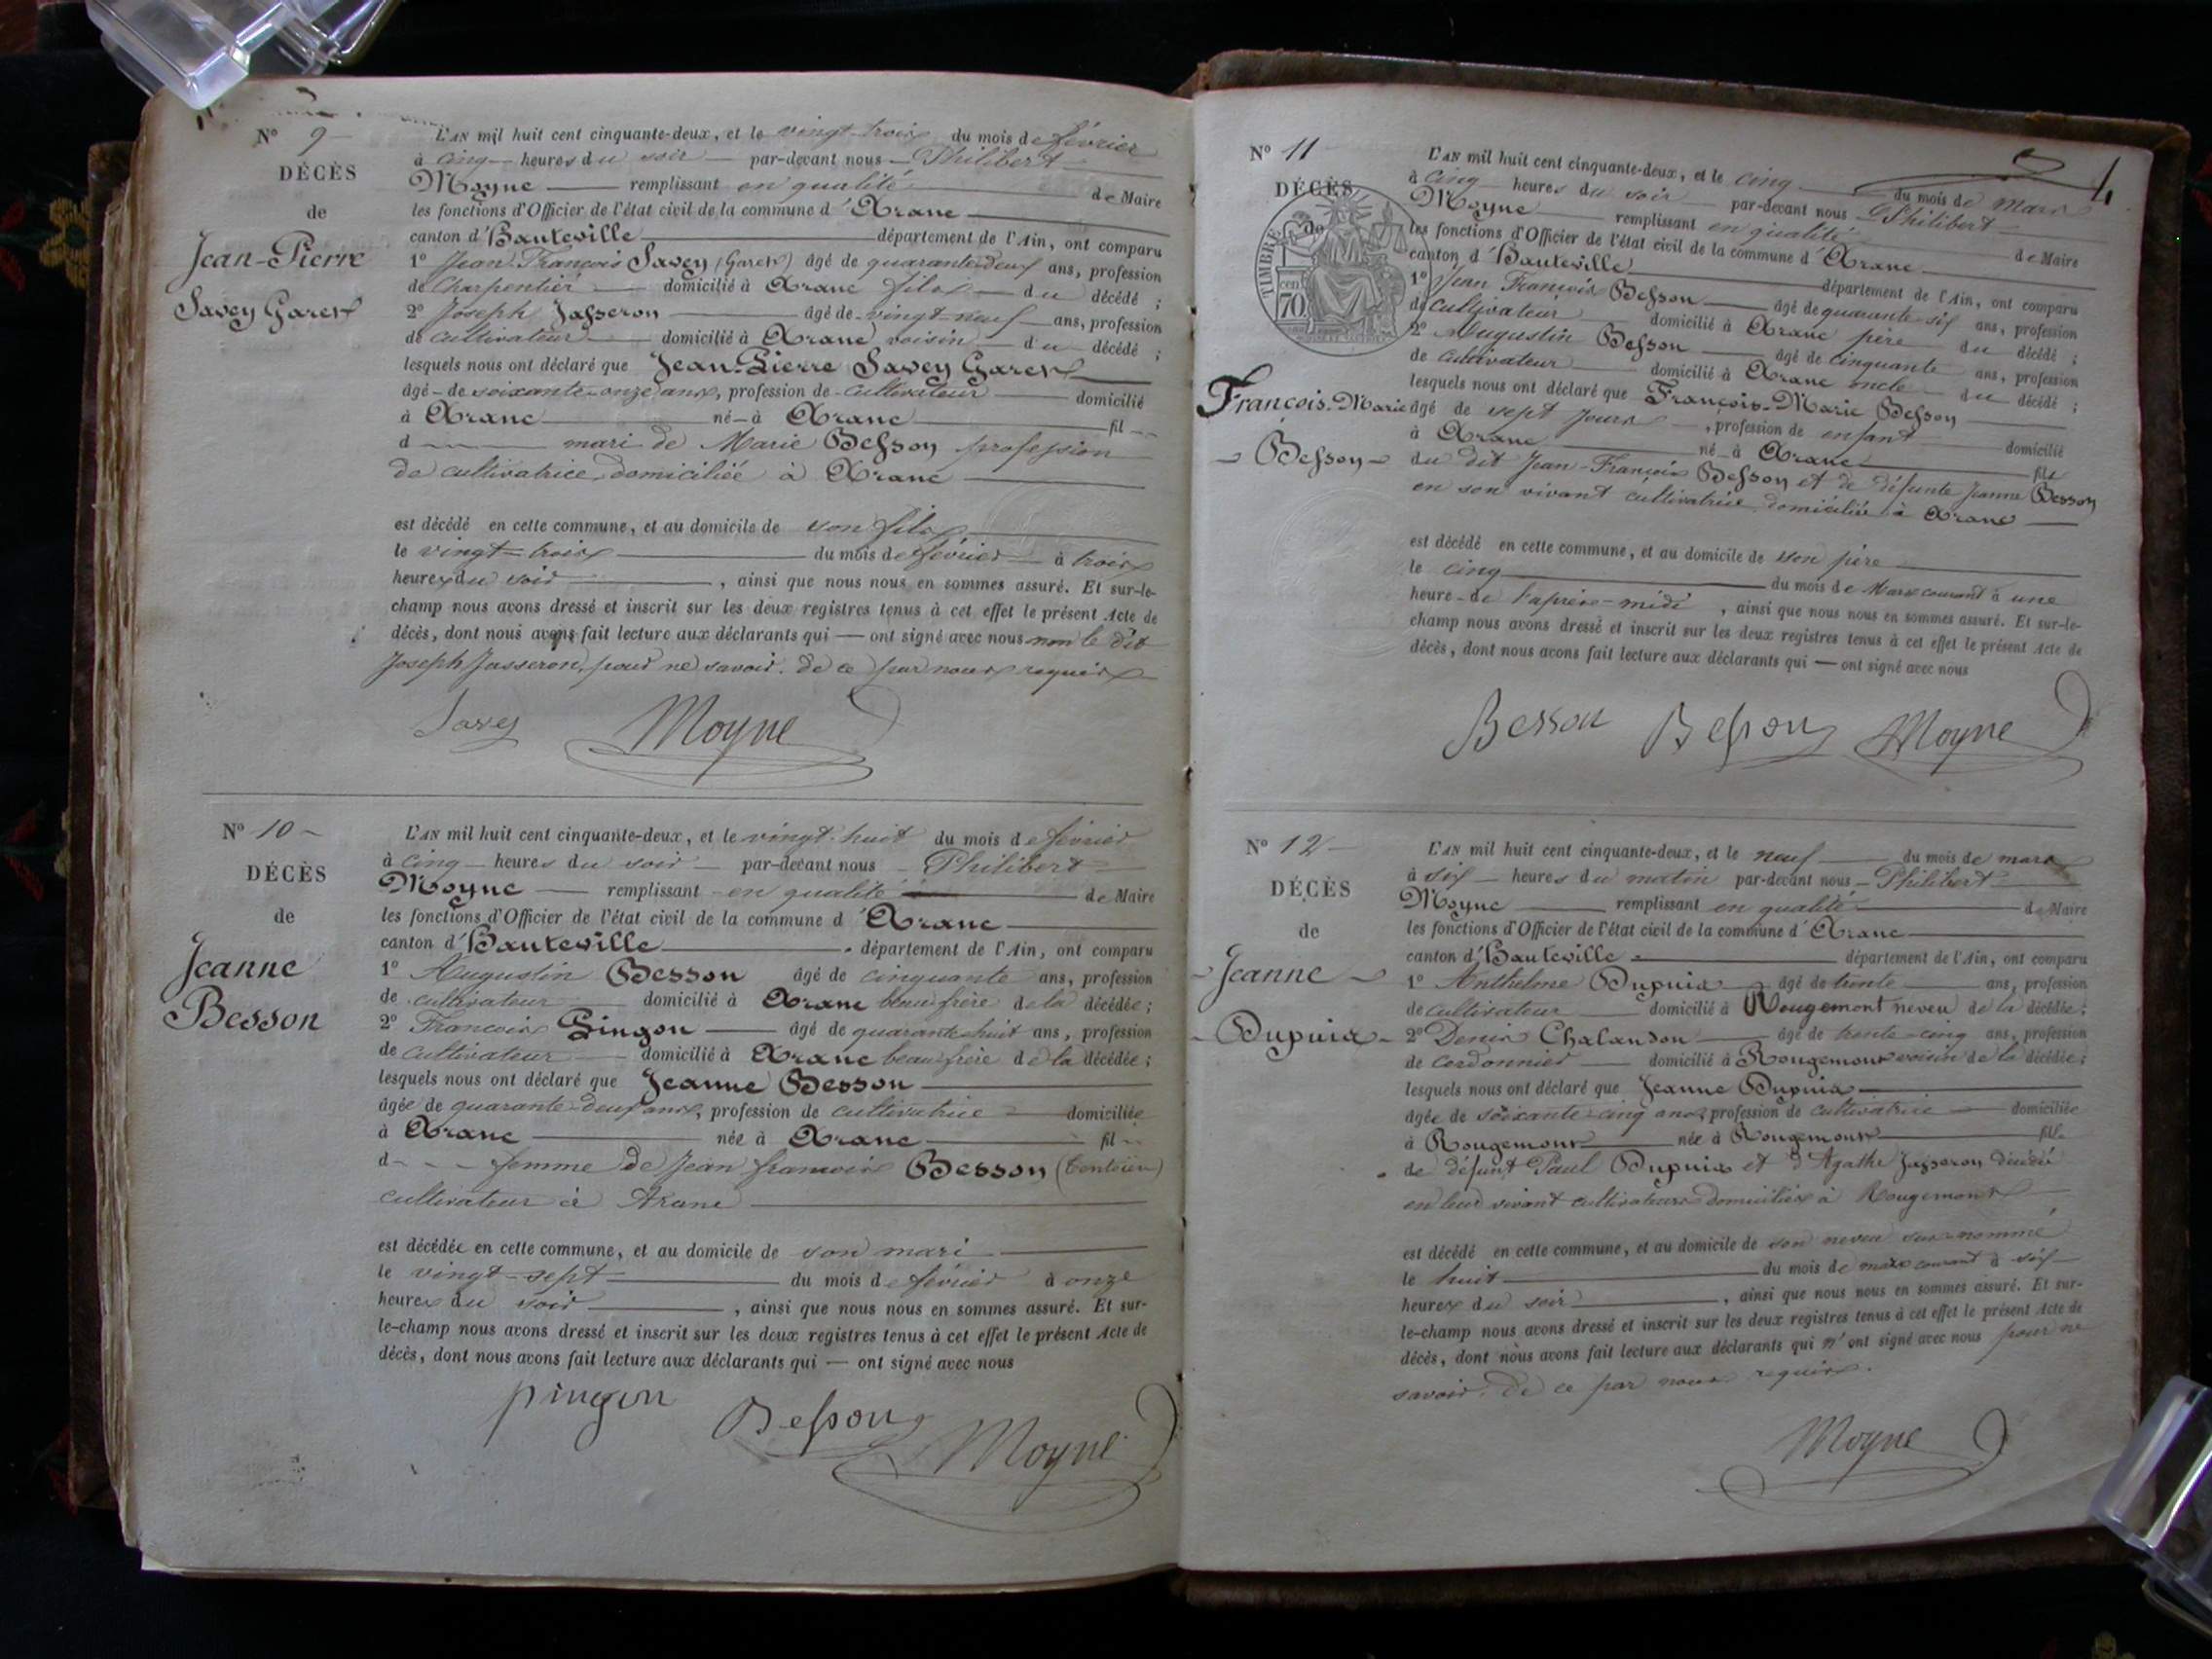 N° 9
DÉCÈS
de
Jean-Pierre
Savey Garet
L'AN mil huit cent cinquante-deux, et le vingt-trois du mois de février
à cinq heures du soir par-devant nous Philibert
Moyne remplissant en qualité de Maire
les fonctions d'Officier de l'état civil de la commune d'Aranc
canton d'Hauteville département de l'Ain, ont comparu
1° Jean-François Savey (Garet) âgé de quarante-deux ans, profession
de charpentier domicilié à Aranc fils du décédé ;
2° Joseph Jasseron âgé de vingt-neuf ans, profession
de cultivateur domicilié à Aranc voisin du décédé ;
lesquels nous ont déclaré que Jean-Pierre Savey Garet
âgé de soixante-onze ans, profession de cultivateur domicilié
à Aranc né à Aranc fil
d mari de Marie Besson profession
de cultivatrice, domiciliée à Aranc
est décédé en cette commune, et au domicile de son fils
le vingt-trois du mois de février à trois
heures du soir, ainsi que nous nous en sommes assuré. Et sur-le-
champ nous avons dressé et inscrit sur les deux registres tenus à cet effet le présent Acte de
décès, dont nous avons fait lecture aux déclarants qui — ont signé avec nous non le dit
Joseph Jasseron, pour ne savoir. de ce par nous requis
Savey Moyne
N° 10
DÉCÈS
de
Jeanne
Besson
L'AN mil huit cent cinquante-deux, et le vingt-huit du mois de février
à cinq heures du soir par-devant nous Philibert
Moyne remplissant en qualité de Maire
les fonctions d'Officier de l'état civil de la commune d'Aranc
canton d'Hauteville département de l'Ain, ont comparu
1° Augustin Besson âgé de cinquante ans, profession
de cultivateur domicilié à Aranc beau frère de la décédée ;
2° François Pingon âgé de quarante-huit ans, profession
de cultivateur domicilié à Aranc beau frère de la décédée ;
lesquels nous ont déclaré que Jeanne Besson
âgée de quarante-deux ans, profession de cultivatrice domiciliée
à Aranc née à Aranc fil
d femme de Jean françois Besson
cultivateur à Aranc
est décédée en cette commune, et au domicile de son mari
le vingt-sept du mois de février à onze
heures du soir, ainsi que nous nous en sommes assuré. Et sur-
le-champ nous avons dressé et inscrit sur les deux registres tenus à cet effet le présent Acte de
décès, dont nous avons fait lecture aux déclarants qui — ont signé avec nous
pingon Besson Moyne
4
N° 11
DÉCÈS
de
TIMBRE
70
cen
François-Marie
Besson
L'AN mil huit cent cinquante-deux, et le cinq du mois de mars
à cinq heures du soir par-devant nous Philibert
Moyne remplissant en qualité de Maire
les fonctions d'Officier de l'état civil de la commune d'Aranc
canton d'Hauteville département de l'Ain, ont comparu
1° Jean François Besson âgé de quarante-six ans, profession
de cultivateur domicilié à Aranc père du décédé ;
2° Augustin Besson âgé de cinquante ans, profession
de cultivateur domicilié à Aranc oncle du décédé ;
lesquels nous ont déclaré que François-Marie Besson
âgé de sept jours, profession de enfant domicilié
à Aranc né à Aranc fils
du dit Jean-François Besson et de défunte Jeanne Besson
en son vivant cultivatrice domiciliée à Aranc
est décédé en cette commune, et au domicile de son père
le cinq du mois de Mars courant à une
heure de l'après-midi, ainsi que nous nous en sommes assuré. Et sur-le-
champ nous avons dressé et inscrit sur les deux registres tenus à cet effet le présent Acte de
décès, dont nous avons fait lecture aux déclarants qui — ont signé avec nous
Besson Besson Moyne
N° 12
DÉCÈS
de
Jeanne
Dupuis
L'AN mil huit cent cinquante-deux, et le neuf du mois de mars
à six heures du matin par-devant nous Philibert
Moyne remplissant en qualité de Maire
les fonctions d'Officier de l'état civil de la commune d'Aranc
canton d'Hauteville département de l'Ain, ont comparu
1° Anthelme Dupuis âgé de trente ans, profession
de cultivateur domicilié à Rougemont neveu de la décédée ;
2° Denis Chalandon âgé de trente-cinq ans, profession
de cordonnier domicilié à Rougemont voisin de la décédée ;
lesquels nous ont déclaré que Jeanne Dupuis
âgée de soixante-cinq ans, profession de cultivatrice domiciliée
à Rougemont née à Rougemont fille
de défunt Paul Dupuis et d'Agathe Jasseron décédé
en leur vivant cultivateurs domiciliés à Rougemont
est décédé en cette commune, et au domicile de son neveu sus-nommé
le huit du mois de mars courant à six
heures du soir, ainsi que nous nous en sommes assuré. Et sur-
le-champ nous avons dressé et inscrit sur les deux registres tenus à cet effet le présent Acte de
décès, dont nous avons fait lecture aux déclarants qui n'ont signé avec nous pour ne
savoir. de ce par nous requis.
Moyne